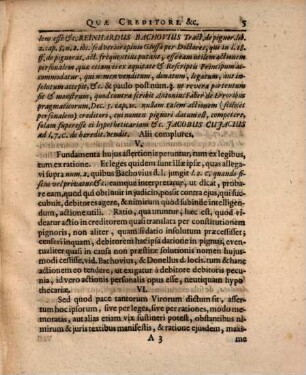 QUÆ CREDITORE &c. 5
dem est &c. REINHARDUS BACHOVIUS Tract. de pignor. lib.
2. cap. 8. n. 2. ibi: sed verior opinio Glossa per Doctores, quo in l. 18.
ff. de pignerat. act. frequentius putant, esse eam utilem actionem
personalem, quæ etiam ex æquitate & Rescriptis Principum ac-
commodatur, qui nomen venditum, donatum, legatum, aut in
solutum accepit, &c. & paulo post num. 3. ut revera portentum
sit & monstrum, quod contra scribit Antonius Faber de Erroribus
pragmaticorum, Dec. cap. nudam ealem actionem (scilicet
personalem) creditori, cui nomen pignori datum est, competere,
solam superesse ei hypothecariam &c. JACOBUS CUJACIUS
ad l. 7. C. de heredit. vendit. Alii complures.
V.
Fundamenta hujus assertionis petuntur, tum ex legibus,
tum ex ratione. Et leges quidem sunt illæ ipsæ, quas allega-
vi supra num. 2, quibus Bachovius d. l. jungit l. 2. C. quando fi-
scus vel privatus &c. easque interpretatur hunc in modum,
quod per ea, quæ obtinet in judicio possit contra ejus, qui fi-
cubuit, debitores agere, & nimirum quod subinde intelligen-
dum, actione utili. Ratio, quatruntur, hæc est, quod vi-
deatur actio in creditorem quasi translata per constitutionem
pignoris, non aliter, quam si antea solutio insolutum præcessisset;
censeri inquam, debitorem hac ipsa datione in pignus, eventua-
liter, & in eum casum non præstitæ solutionis nomen hujus-
modi cessisse. vid. Bachovius, & Donellus d. locis. tum & hanc
actionem eo tendere, ut exigatur à debitore debitoris pecu-
nia, id vero actionis personalis opus esse, neutiquam hypo-
thecariæ.
VI.
Sed quod pace tantorum Virorum dictum sit, asser-
tum hoc ipsorum, sive per leges, sive per rationes, modo me-
moratas, aut alias etiam vix sustineri potest, obstantibus ni-
mirum & juris textibus manifestis, & ratione ejusdem, maxi-
A 3 me